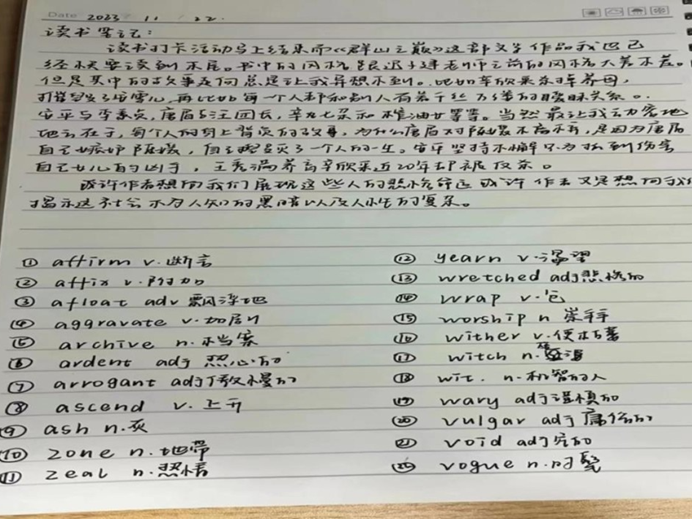 Date 2023 11 22.
读书笔记:
读书打卡活动马上结束而《群山之巅》这部文学作品我也已
经快要读到末尾。书中的风格跟迟子建老师之前的风格大差不差。
但是其中的故事走向总是让我异想不到。比如辛欣来杀掉养母,
安雪儿,再比如每一个人都和别人有着千丝万缕的暧昧关系。
安平与李素贞,唐眉与汪团长,辛七杂和油女等等。当然最让我
在于,每个人的身上背负的故事,为什么唐眉对陈媛不离不弃,是因为唐眉
自己嫉妒陈媛,自己毁灭了一个人的一生。安平坚持不懈只为找到伤害
自己女儿的凶手,王秀满养育辛欣来近20年却被反杀。
或许作者想向我们展现这些人的悲惨命运或许作者又是想向我们
揭示这社会不为人知的黑暗以及人性的复杂。
① affirm v.断言
② affix v.附加
③ afloat adv飘浮地
④ aggravate v.加剧
⑤ archive n.档案
⑥ ardent adj 热心的
⑦ arrogant adj傲慢的
⑧ ascend v.上升
⑨ ash n.灰
⑩ zone n.地带
⑪ zeal n.热情
⑫ yearn v.渴望
⑬ wretched adj悲惨的
⑭ wrap v.包
⑮ worship n 崇拜
⑯ wither v.使枯萎
⑰ witch n.
⑱ wit. n.机智的人
⑲ wary adj谨慎的
⑳ vulgar adj庸俗的
㉑ void adj空的
㉒ vogue n.时髦